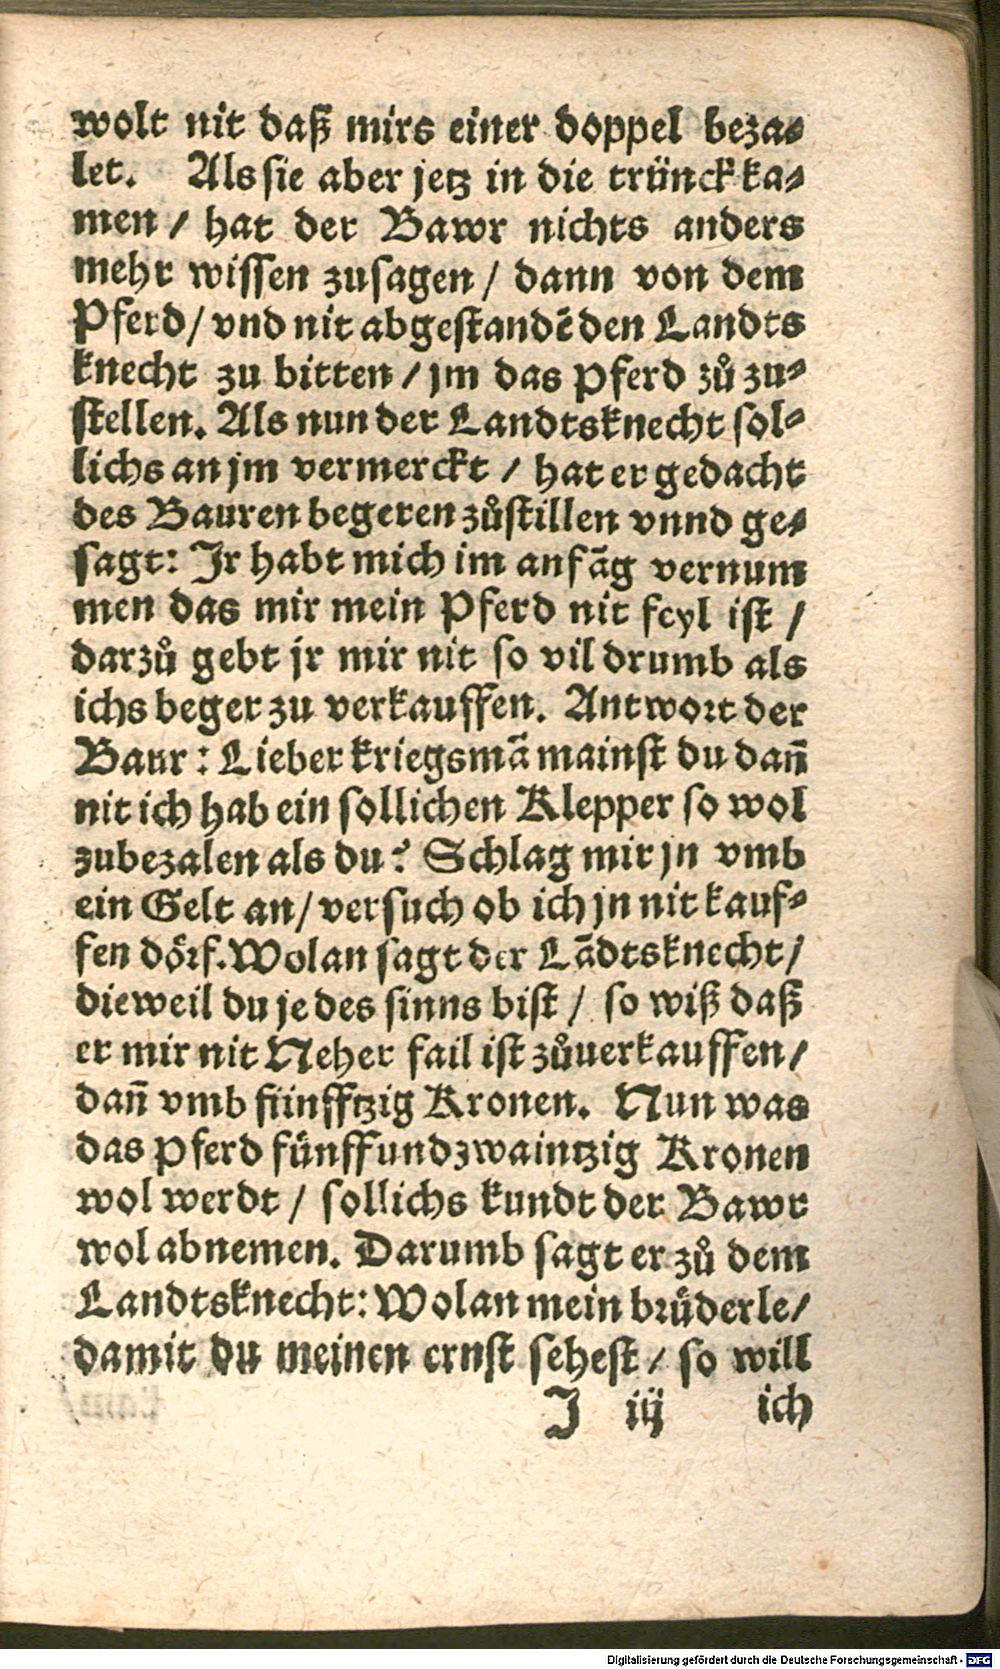 wolt nit daß mirs einer doppel beza⸗
let. Als sie aber jetz in die trünck ka⸗
men / hat der Bawr nichts anders
mehr wissen zusagen / dann von dem
Pferd / vnd nit abgestandẽ den Landts
knecht zu bitten / jm das Pferd zů zu⸗
stellen. Als nun der Landtsknecht sol⸗
lichs an jm vermerckt / hat er gedacht
des Bauren begeren zůstillen vnnd ge⸗
sagt: Jr habt mich im anfãg vernum
men das mir mein Pferd nit feyl ist /
darzů gebt jr mir nit so vil drumb als
ichs beger zu verkauffen. Antwort der
Baur: Lieber kriegsmã mainst du dañ
nit ich hab ein sollichen Klepper so wol
zubezalen als du? Schlag mir jn vmb
ein Gelt an / versuch ob ich jn nit kauf⸗
fen dörf. Wolan sagt der Lãdtsknecht /
dieweil du je des sinns bist / so wiß daß
er mir nit Neher fail ist zůuerkauffen /
dañ vmb fünfftzig Kronen. Nun was
das Pferd fünffundzwaintzig Kronen
wol werdt / sollichs kundt der Bawr
wol abnemen. Darumb sagt er zů dem
Landtsknecht: Wolan mein brüderle /
damit du meinen ernst sehest / so will
J iij ich
Digitalisierung gefördert durch die Deutsche Forschungsgemeinschaft - DFG